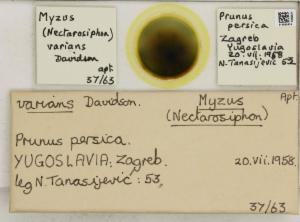 Myzus
(Nectarosiphon)
varians
Davidson
apt.
37/63
Prunus
persica
Zagreb
Yugoslavia
20.vii.1958
N.Tanasijević 53
varians Davidson.
Myzus
(Nectarosiphon)
Apt.
Prunus persica.
YUGOSLAVIA, Zagreb.
20.vii.1958.
leg N.Tanasijević: 53,
37/63